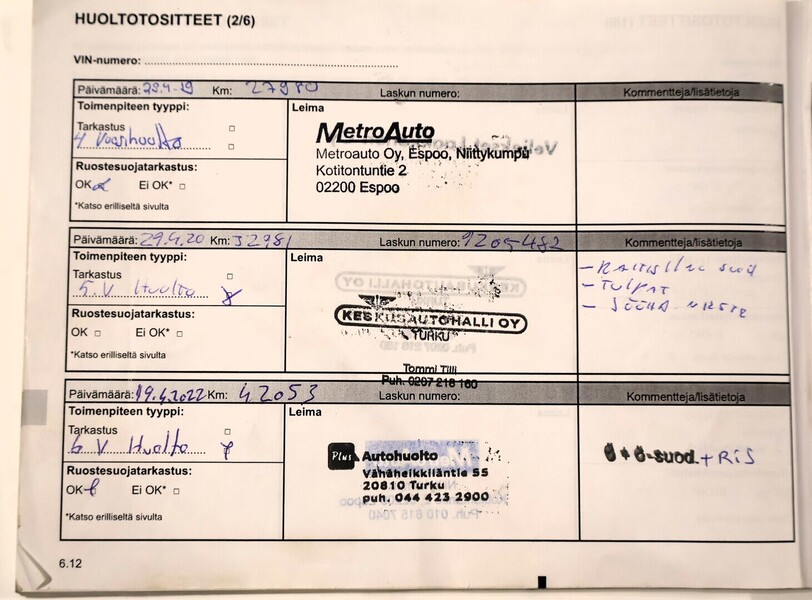 HUOLTOTOSITTEET (2/6)
VIN-numero:
Päivämäärä: 29.4-19 Km: 27980 Laskun numero: Kommentteja/lisätietoja
Toimenpiteen tyyppi: Leima
Tarkastus
4 Vuosihuolto
MetroAuto
Metroauto Oy, Espoo, Niittykumpu
Kotitontuntie 2
02200 Espoo
Ruostesuojatarkastus:
OK Ei OK*
*Katso erilliseltä sivulta
Päivämäärä: 29.4.20 Km: 32981 Laskun numero: 9205482 Kommentteja/lisätietoja
Toimenpiteen tyyppi: Leima
Tarkastus
5.V Huolto
- TULPAT
KESKUSAUTOHALLI OY
TURKU
Tommi Tilli
Puh. 0207 218 160
Ruostesuojatarkastus:
OK Ei OK*
*Katso erilliseltä sivulta
Päivämäärä: 19.4.2022 Km: 42053 Laskun numero: Kommentteja/lisätietoja
Toimenpiteen tyyppi: Leima
Tarkastus
6 V Huolto
Plus Autohuolto
Vähäheikkiläntie 55
20810 Turku
puh. 044 423 2900
Ö+Ö-suod. + RIS
Ruostesuojatarkastus:
OK Ei OK*
*Katso erilliseltä sivulta
6.12